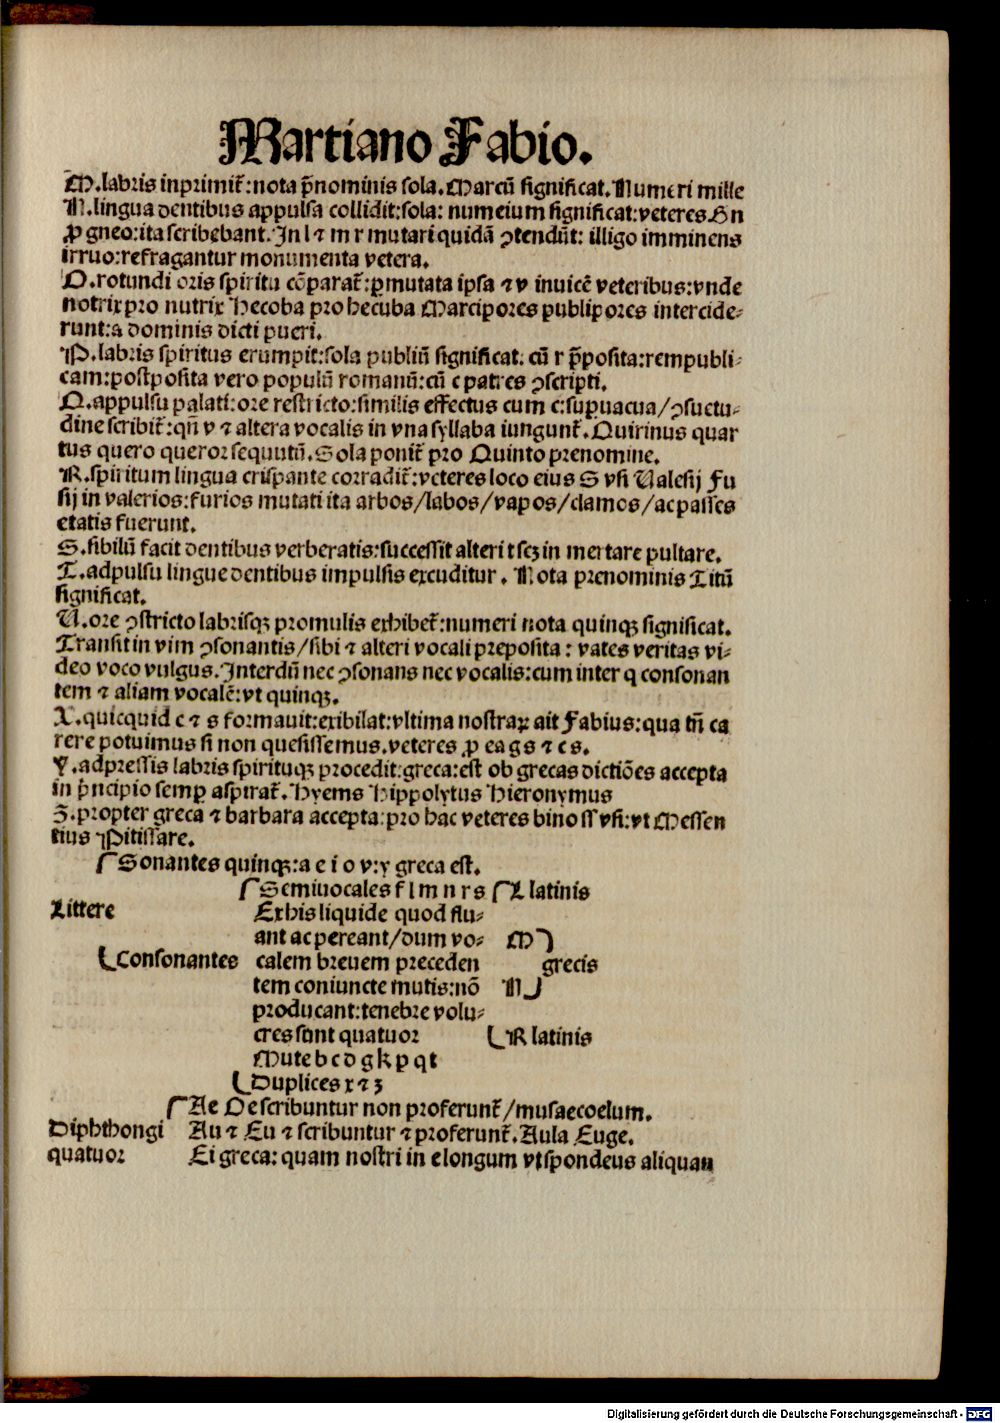 Martiano Fabio.
M.labris inprimit̃:nota p̃nominis sola.Marcū significat.Numeri mille
N.lingua dentibus appulsa collidit:sola: numeium significat:veteres Gn
ꝓ gneo:ita scribebant.In l ⁊ m r mutari quidā ꝯtendūt: illigo imminens
irruo:refragantur monumenta vetera.
O.rotundi oris spiritu cōparat̃:ꝑmutata ipsa ⁊ v inuicē veteribus:vnde
notrix pro nutrix Hecoba pro hecuba Marcipores publipores intercide⸗
runt:a dominis dicti pueri.
P.labris spiritus erumpit:sola publiū significat: cū r p̃posita:rempubli⸗
cam:postposita vero populū romanū:cū c patres ꝯscripti.
Q.appulsu palati:ore restricto:similis effectus cum c:suꝑuacua/ꝯsuetu⸗
dine scribit̃:qn̄ v ⁊ altera vocalis in vna syllaba iungunt̃.Quirinus quar
tus quero queror sequutū.Sola ponit̃ pro Quinto prenomine.
R.spiritum lingua crispante corradit̃:veteres loco eius S vsi Valesij Fu
sij in valerios:furios mutati ita arbos/labos/vapos/clamos/ac passes
etatis fuerunt.
S.sibilū facit dentibus verberatis:successit alteri t scꝫ in mertare pultare.
T.adpulsu lingue dentibus impulsis excuditur. Nota prenominis Titū
significat.
V.ore ꝯstricto labrisqꝫ promulis exhibet̃:numeri nota quinqꝫ significat.
Transit in vim ꝯsonantis/sibi ⁊ alteri vocali preposita: vates veritas vi⸗
deo voco vulgus.Interdū nec ꝯsonans nec vocalis:cum inter q consonan
tem ⁊ aliam vocalē:vt quinqꝫ.
X.quicquid c ⁊ s formauit:exibilat:vltima nostraꝝ ait Fabius:qua tn̄ ca
rere potuimus si non quesissemus.veteres ꝓ ea g s ⁊ c s.
Y.adpressis labris spirituqꝫ procedit:greca:est ob grecas dictiōes accepta
in pͥncipio semꝑ aspirat̃.Hyems Hippolytus Hieronymus
Z.propter greca ⁊ barbara accepta:pro hac veteres bino ss vsi:vt Messen
tius Pitissare.
Sonantes quinqꝫ:a e i o v:y greca est.
Semiuocales f l m n r s L latinis
Littere Ex his liquide quod flu⸗
ant ac pereant/dum vo⸗ M
Consonantes calem breuem preceden grecis
tem coniuncte mutis:nō N
producant:tenebre volu⸗
cres sunt quatuor R latinis
Mute b c d g k p q t
Duplices x ⁊ z
Ae Oe scribuntur non proferunt̃/musae coelum.
Diphthongi Au ⁊ Eu ⁊ scribuntur ⁊ proferunt̃.Aula Euge.
quatuor Ei greca: quam nostri in e longum vt spondeus aliquan
Digitalisierung gefördert durch die Deutsche Forschungsgemeinschaft - DFG